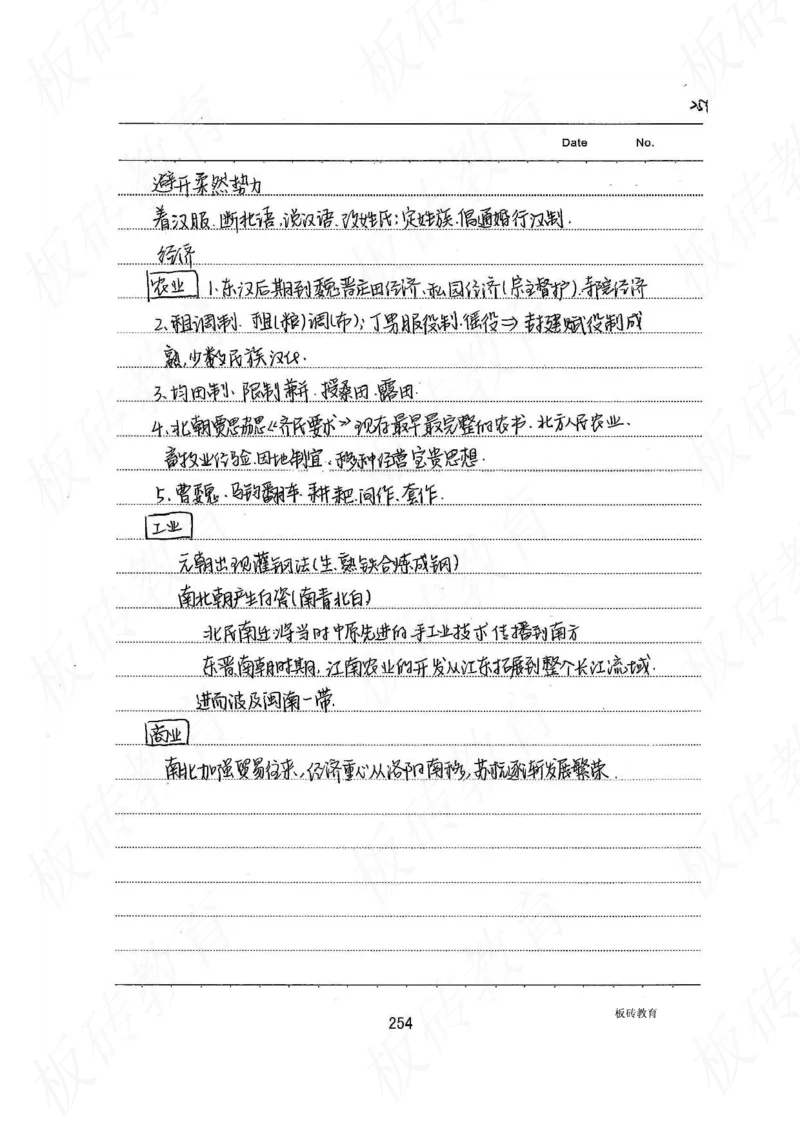 254
Date No.
避开柔然势力
着汉服、断北语、说汉语、改姓氏；定姓族、倡通婚行汉制.
经济
农业 1.东汉后期到魏晋庄田经济、私园经济(宗主督护).寺院经济
2、租调制. 租(粮)调(布)；丁男服役制.徭役⇒封建赋役制成
熟,少数民族汉化.
3、均田制、限制兼并.授桑田.露田.
4、北朝贾思勰《齐民要术》现存最早最完整的农书、北方人民农业、
畜牧业经验.因地制宜、多种经营宝贵思想.
5、曹魏、马钧翻车.耕耙.间作、套作.
工业
元朝出现灌钢法(生、熟铁合炼成钢)
南北朝产生白瓷(南青北白)
北民南迁将当时中原先进的手工业技术传播到南方
东晋南朝时期,江南农业的开发从江东拓展到整个长江流域.
进而波及闽南一带.
商业
南北加强贸易往来,经济重心从洛阳南移,苏杭逐渐发展繁荣.
254
板砖教育